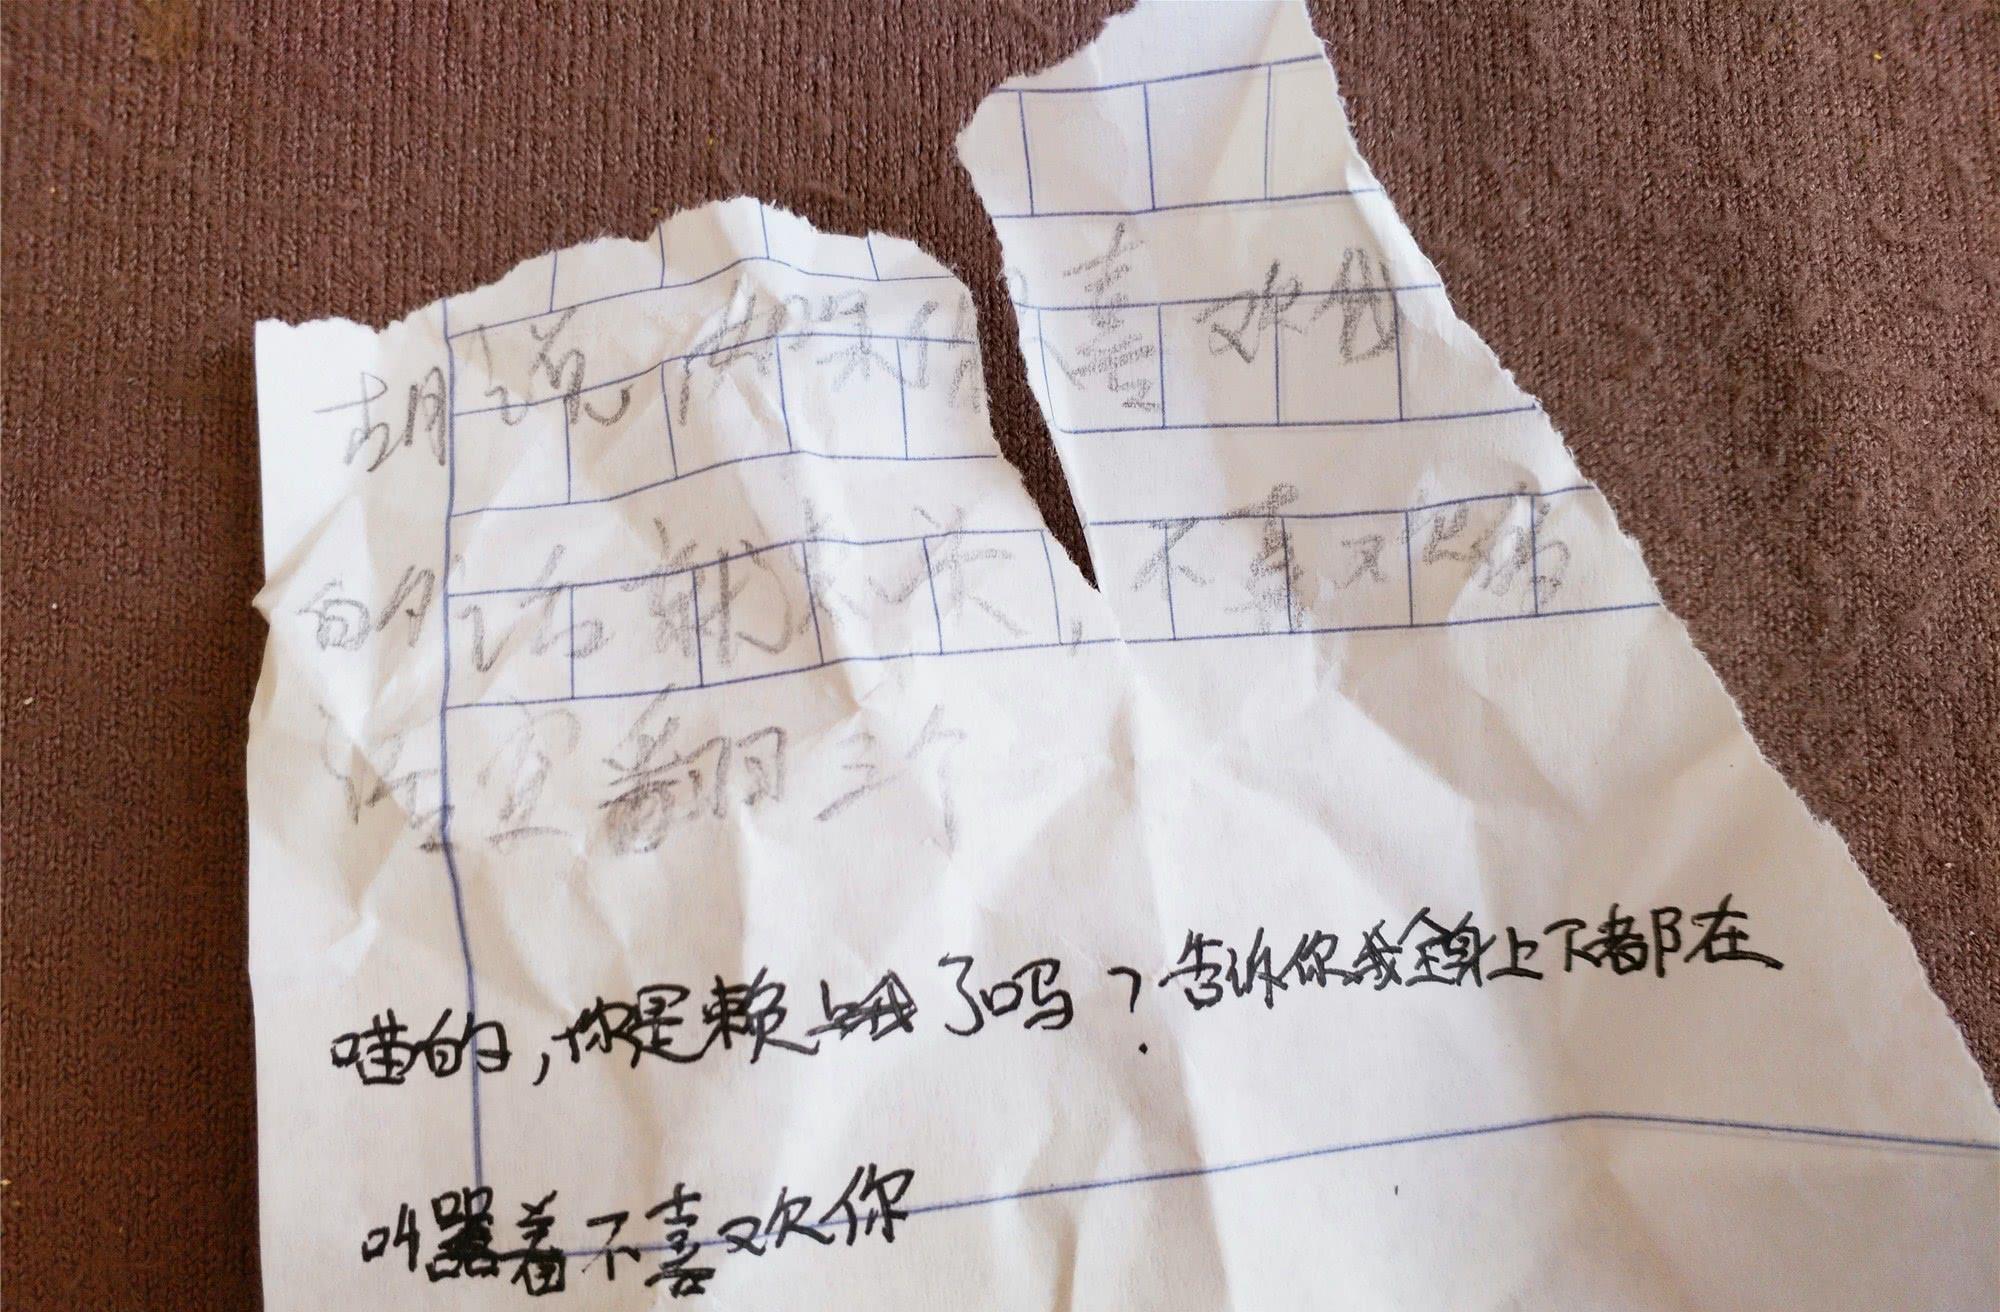 胡说，如果你喜欢我
的话就点头，不喜欢的话
空翻三个
喵的，你是赖上我了吗？告诉你我全身上下都在
叫嚣着不喜欢你